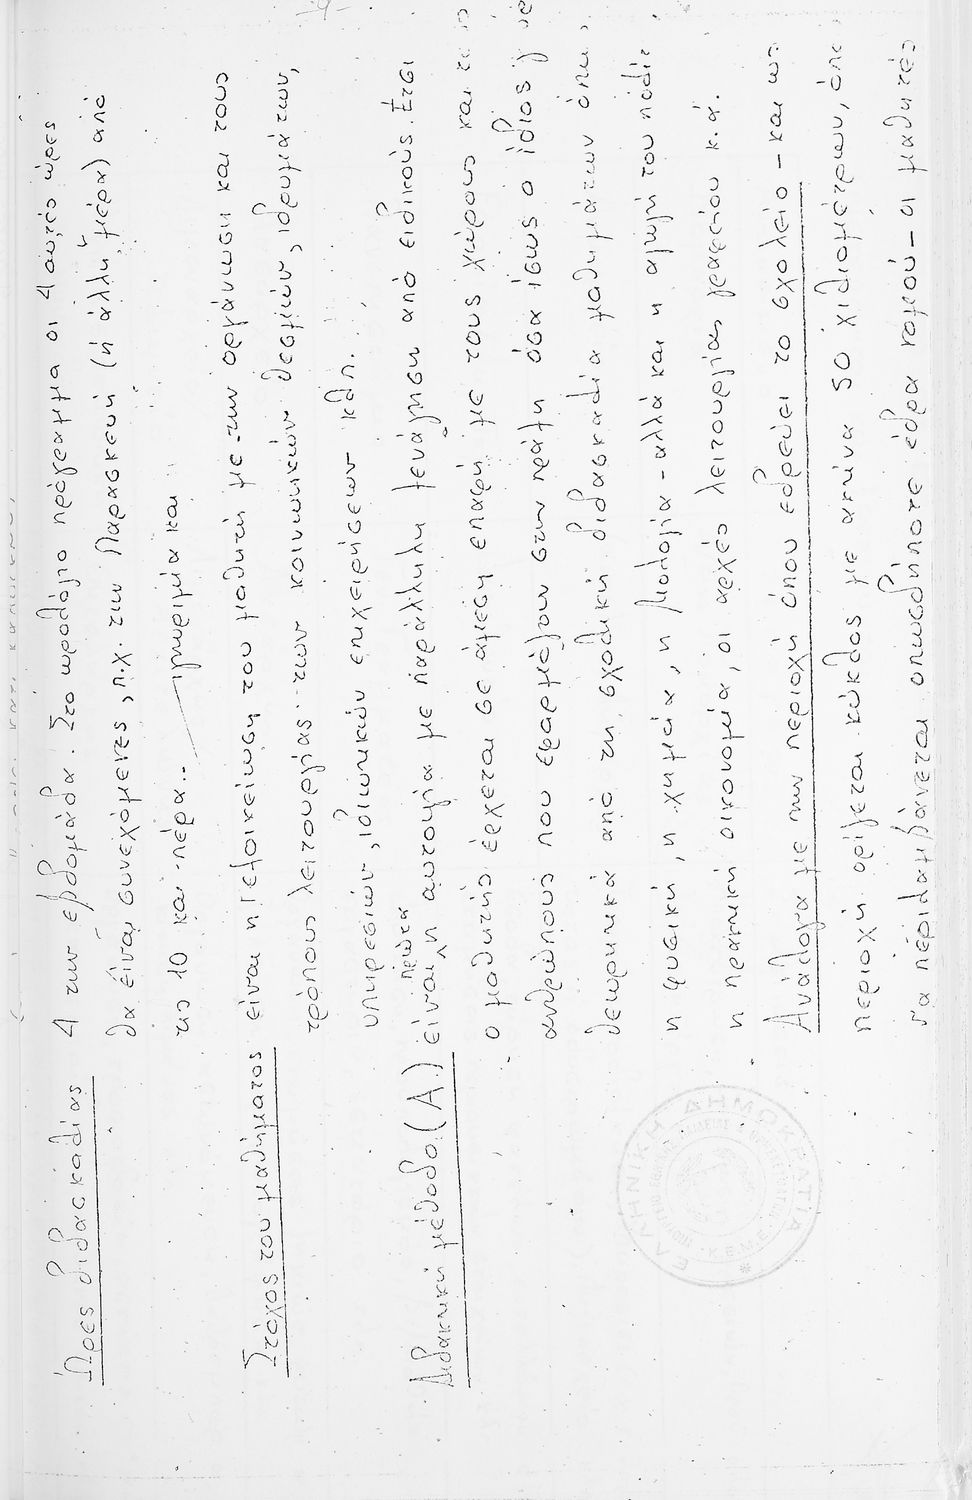 -9-
Ώρες διδασκαλίας 4 την εβδομάδα. Στο ωρολόγιο πρόγραμμα οι 4 αυτές ώρες
θα είναι συνεχόμενες, π.χ. την Παρασκευή (ή άλλη μέρα) από
τις 10 και πέρα..
Στόχος του μαθήματος είναι η εξοικείωση του μαθητή με την οργάνωση και τους
γνωριμία και
τρόπους λειτουργίας των κοινωνικών θεσμών, ιδρυμάτων,
υπηρεσιών, ιδιωτικών επιχειρήσεων κλπ.
Διδακτική μέθοδο (Α.) είναι πρώτα η αυτοψία με παράλληλη ξενάγηση από ειδικούς. Έτσι
ο μαθητής έρχεται σε άμεση επαφή με τους χώρους και το
ανθρώπους που εφαρμόζουν στην πράξη όσα ίσως ο ίδιος γ
θεωρητικά από τη σχολική διδασκαλία μαθημάτων όπω
η φυσική, η χημεία, η βιολογία - αλλά και η αγωγή του πολί
η πρακτική οικονομία, οι αρχές λειτουργίας γραφείου κ.ά.
Ανάλογα με την περιοχή όπου εδρεύει το σχολείο - και ως
περιοχή ορίζεται κύκλος με ακτίνα 50 χιλιομέτρων, όπο
να περιλαμβάνεται οπωσδήποτε έδρα νομού - οι μαθητές
ΕΛΛΗΝΙΚΗ ΔΗΜΟΚΡΑΤΙΑ
Κ.Ε.Μ.Ε.